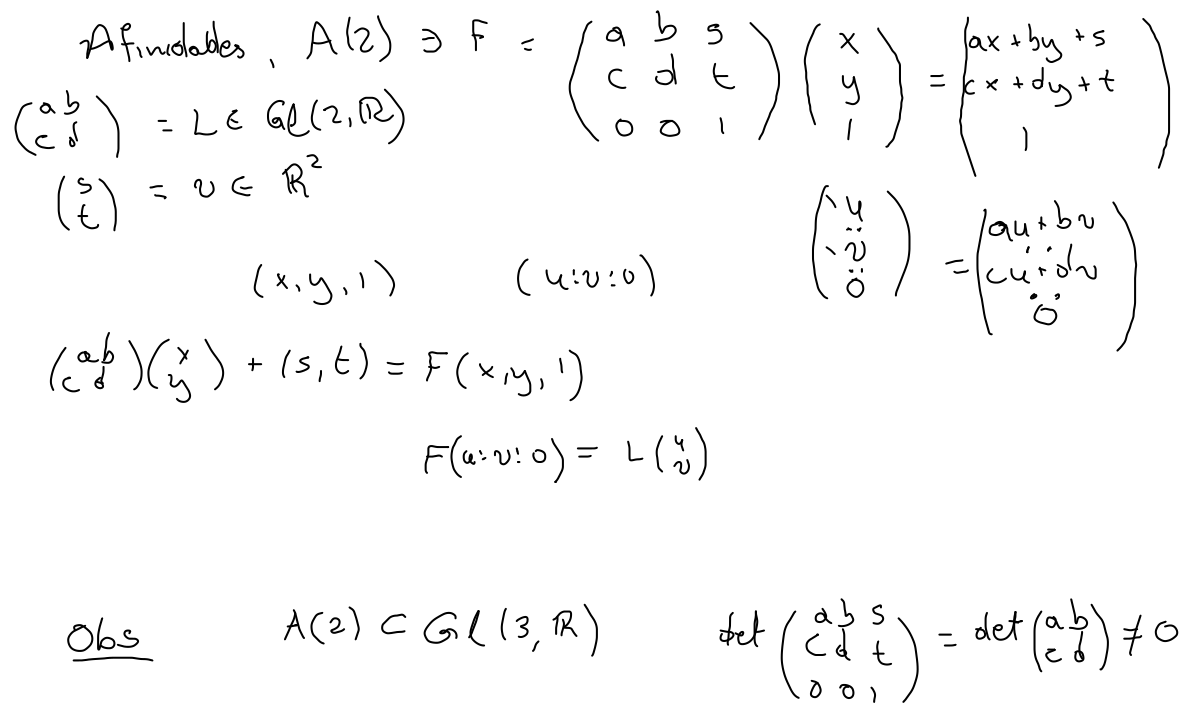 Afinidades, A(2) ∋ F = \begin{pmatrix} a & b & s \\ c & d & t \\ 0 & 0 & 1 \end{pmatrix} \begin{pmatrix} x \\ y \\ 1 \end{pmatrix} = \begin{pmatrix} ax+by+s \\ cx+dy+t \\ 1 \end{pmatrix}
\begin{pmatrix} a & b \\ c & d \end{pmatrix} = L ∈ Gl(2, ℝ)
\begin{pmatrix} s \\ t \end{pmatrix} = v ∈ ℝ²
\begin{pmatrix} u \\ \ddot{} \\ v \\ \ddot{} \\ 0 \end{pmatrix} = \begin{pmatrix} au+bv \\ \ddot{} \\ cu+dv \\ \ddot{} \\ 0 \end{pmatrix}
(x, y, 1) (u:v:0)
\begin{pmatrix} a & b \\ c & d \end{pmatrix} \begin{pmatrix} x \\ y \end{pmatrix} + (s, t) = F(x, y, 1)
F(u:v:0) = L \begin{pmatrix} u \\ v \end{pmatrix}
Obs A(2) ⊂ Gl(3, ℝ) det \begin{pmatrix} a & b & s \\ c & d & t \\ 0 & 0 & 1 \end{pmatrix} = det \begin{pmatrix} a & b \\ c & d \end{pmatrix} ≠ 0